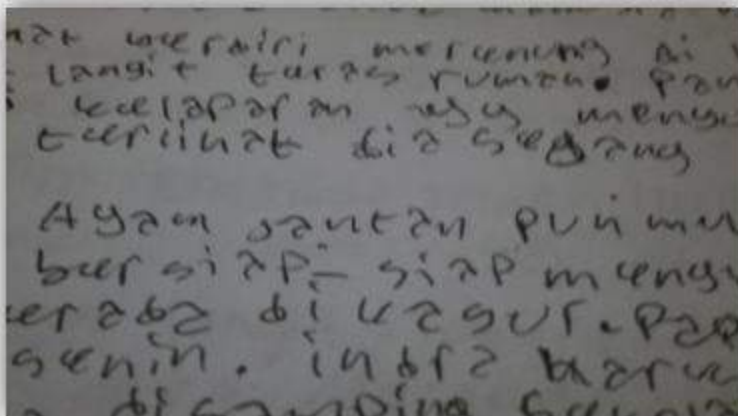 berdiri merenung di
langit teras rumah. pan
kelaparan yg meng
terlihat dia sedang
Ayam jantan pun mu
bersiap-siap meng
erada di kasur. Pap
senin. indra baru
di samping